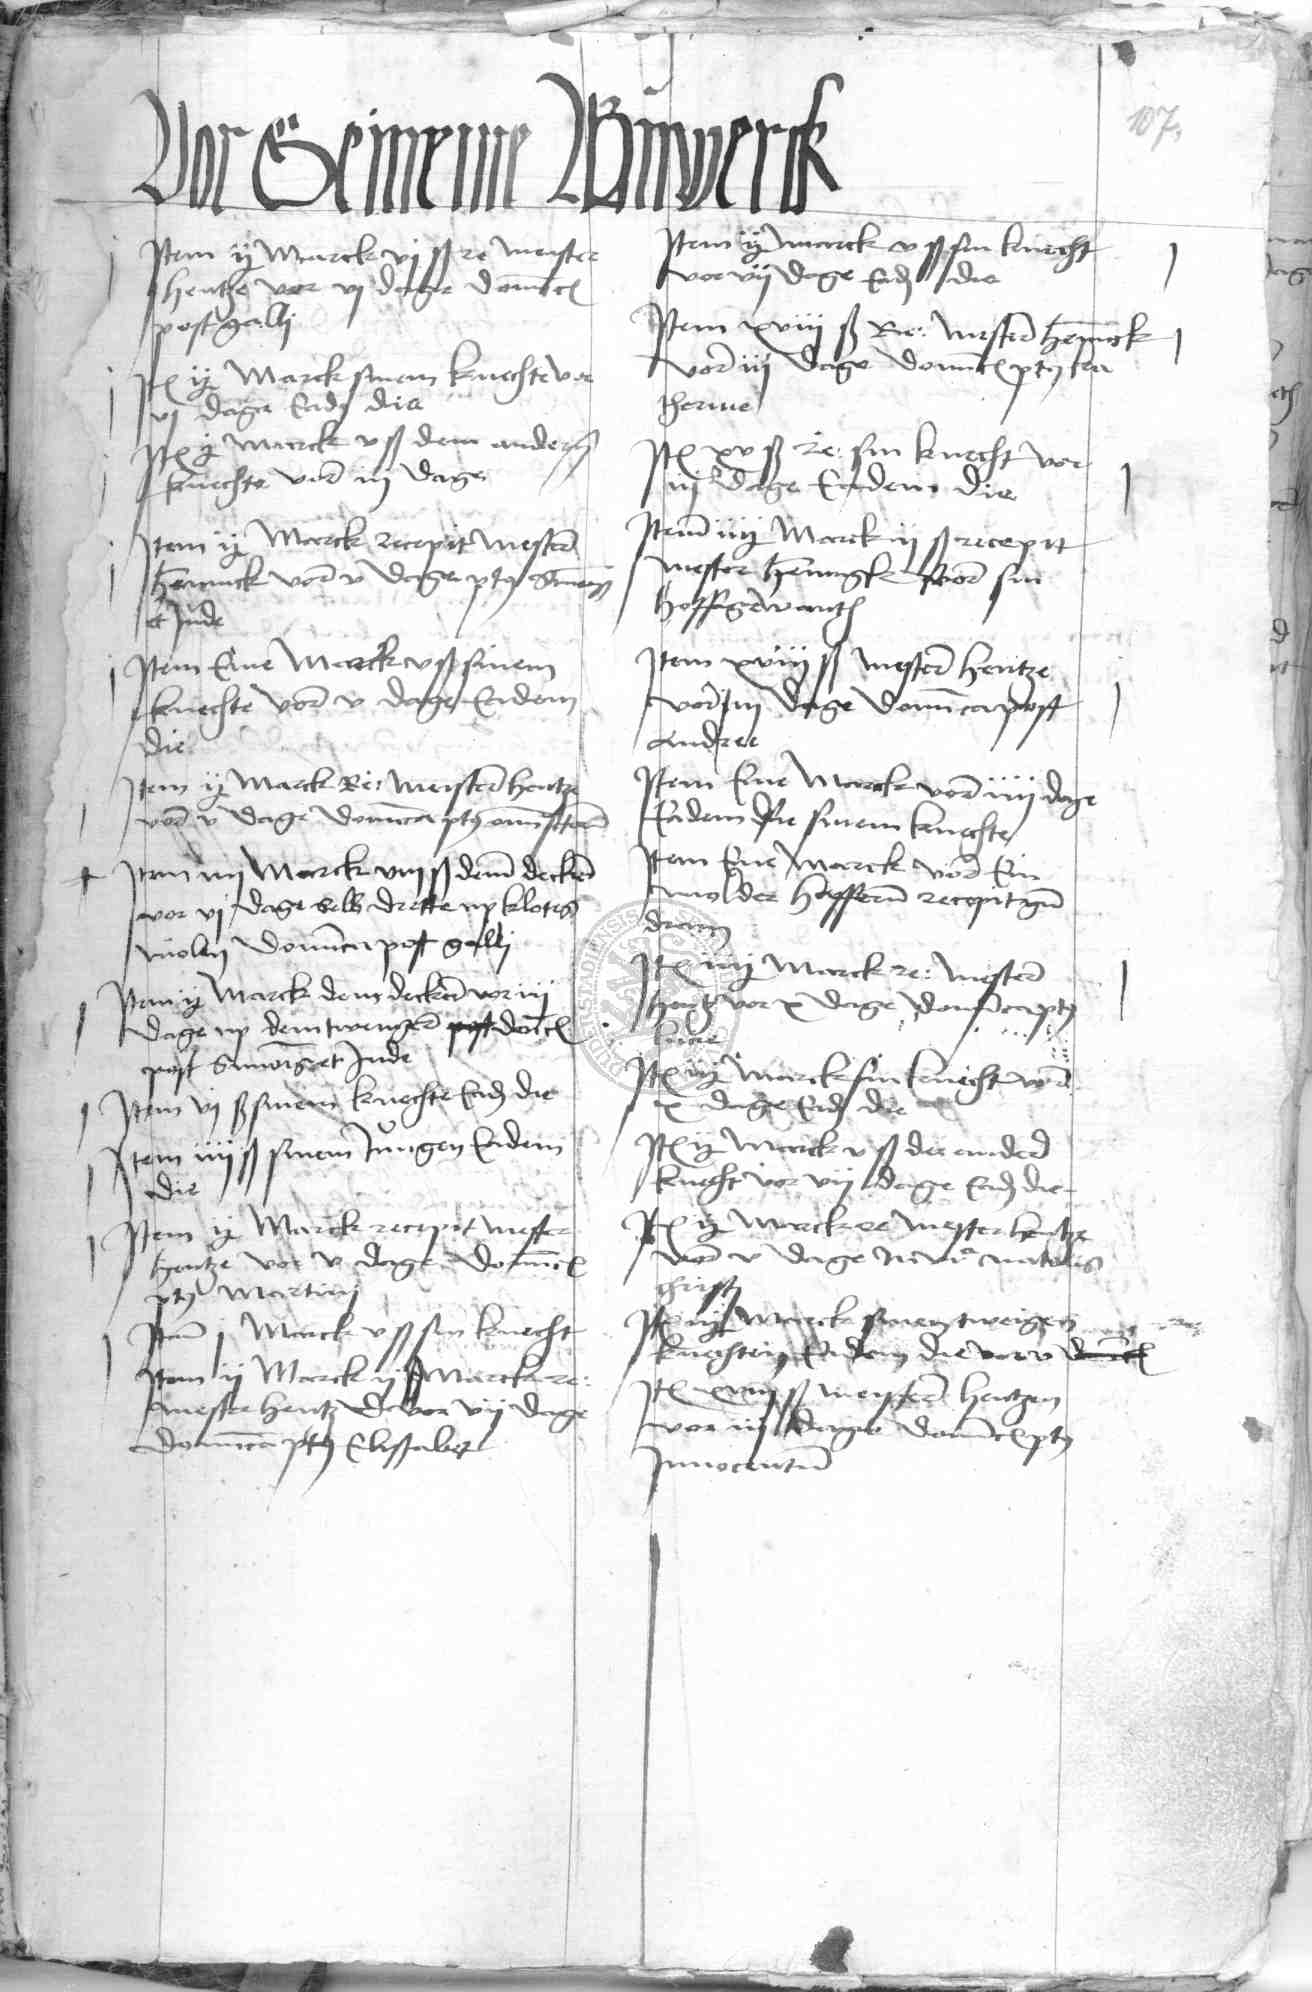 107.
Vor Gemeine Buwerck
Item ij Marck vj ß re meister
Hentze vor vj dage domīcͣ
post galli
Itͫ ij Marck sinem knechte vor
vj dage Eadͫ die
Itͫ j Marck v ß dem anderen
knechte vor iij dage
Item ij Marck recepit mester
Hennick vor v dage pty Simonis
et Jude
Item Eine Marck v ß sinem
knechte vor v dage Eadem
die
Item ij Marck Re: Meister hentze
vor v dage domīca pty omniū
Item iiij Marck viij ß dem decker
vor vj dage selb drette up klotes
molen Domīca post galli
Item ij Marck dem decker vor iiij
dage up dem twenger post domīcͣ
post Simonis et Jude
Item vj ß sinem knechte Eadͫ die
Item iiij ß sinem Jungen Eadem
die
Item ij Marck recepit mester
hentze vor v dage domīcͣ
pty Martini
Item j Marck v ß sin knecht
Item ij Marck ij ß Marck re:
mester hentze vor vij dage
domīca pty Elissabet
Item ij marck v ß sin knecht
vor vij dage Eadͫ die
Item xviij ß Re: mester Hennick
vor iij dage domīcͣ pty ka
therine
Itͫ xv ß re: sin knecht vor
iij dage Eadem die
Item iiij Marck ij ß recepit
mester Hennigk vor sin
hoffgewanth
Item xviij ß mester hentze
vor iij dage domīca post
andree
Item Eine Marck vor iiij dage
Eadem die sinem knechte
Item Eine Marck vor Ein
molder hafferen recepit
Itͫ iiij Marck re: mester
hentz vor x dage domīca pty
lucie
Itͫ iij Marck sin knecht vor
x dage Eadͫ die
Itͫ ij Marck v ß der ander
knecht vor vij dage Eadͫ die
Itͫ ij Marck re mester hentze
vor v dage natalis
Christi
Itͫ iij Marck sinen tweigen
knechten Eadem die vor v domīcͣ
Itͫ xviij ß meister hentzen
vor iij dage domīcͣ pty
Innocentū